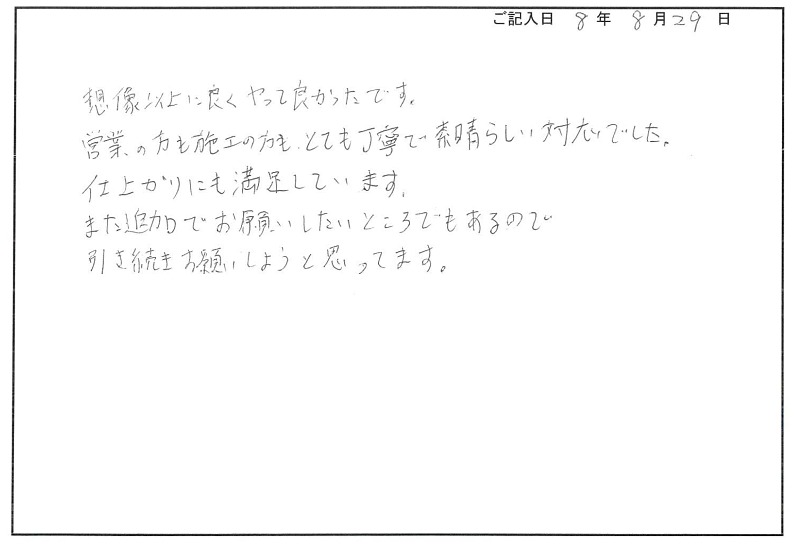 ご記入日 8年 8月29日
想像以上に良くやって良かったです。
営業の方も施工の方も、とても丁寧で素晴らしい対応でした。
仕上がりにも満足しています。
また追加でお願いしたいところでもあるので
引き続きお願いしようと思ってます。